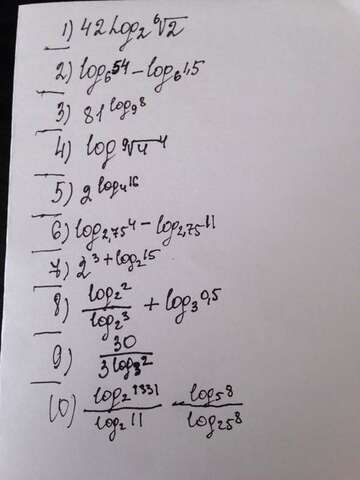 1) 42 log₂ ⁶√2
2) log₆54 - log₆1,5
3) 81^(log₉8)
4) log_(⁹√4) 4
5) 2^(log₄16)
6) log₂,₇₅4 - log₂,₇₅11
7) 2^(3+log₂15)
8) log₂2 / log₂3 + log₃0,5
9) 30 / 3^(log₃2)
10) log₂1331 / log₂11 - log₅8 / log₂₅8